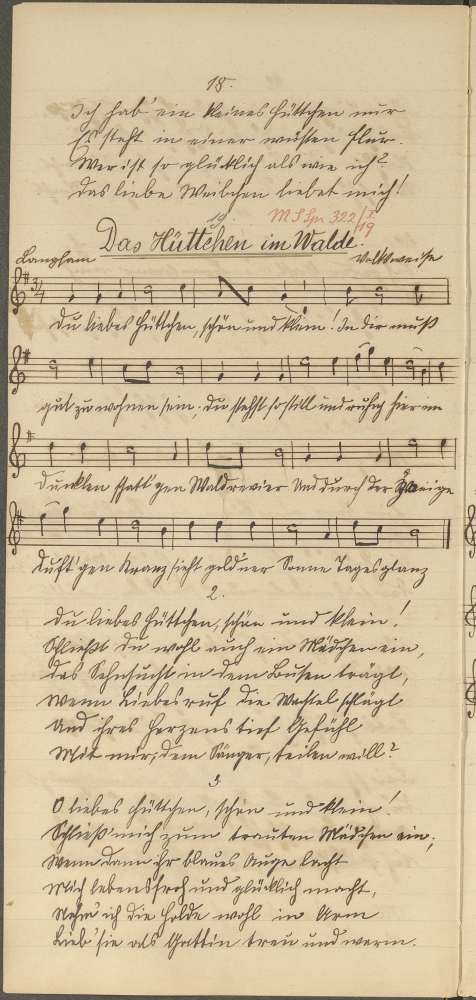 18.
Ich hab' ein kleines Hüttchen nur
Es steht in einer wüsten Flur.
Wer ist so glücklich als wie ich?
Das liebe Weibchen liebet mich!
19. MS Spr 322/I 19
Das Hüttchen im Walde.
Langsam Volksweise
3/4
Du liebes Hüttchen, schön und klein! In dir muß
gut zu wohnen sein; Du stehst so still und ruhig hier im
dunklen schatt'gen Waldrevier Und durch der Zweige
duft'gen Kranz sieht gold'ner Sonne Tagesglanz
2.
Du liebes Hüttchen, schön und klein!
Schließt du wohl auch ein Mädchen ein,
Das Sehnsucht in dem Busen trägt,
Wenn Liebesruf die Wachtel schlägt
Und ihres Herzens tief Gefühl
Mit mir, dem Sänger, teilen will?
3.
O liebes Hüttchen, schön und klein!
Schließ' mich zum trauten Mädchen ein;
Wenn dann ihr blaues Auge lacht
Mich lebensfroh und glücklich macht,
Nehm' ich die Holde wohl in Arm
Lieb' sie als Gattin treu und warm.